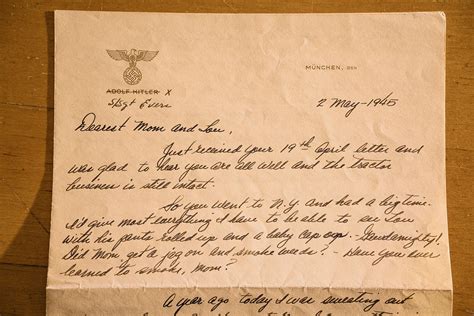 ADOLF HITLER X
S/Sgt Evers
MÜNCHEN, DEN
2 May-1945
Dearest Mom and Lou,
Just received your 19th April letter and
was glad to hear you are all well and the tractor
business is still intact.
So you went to N.Y. and had a big time.
I'd give most everything I have to be able to see Lou
with his pants rolled up and a baby cap on. -
Did Mom get a jag on and smoke weeds? - Have you ever
learned to smoke, Mom?
A year ago today I was sweating out